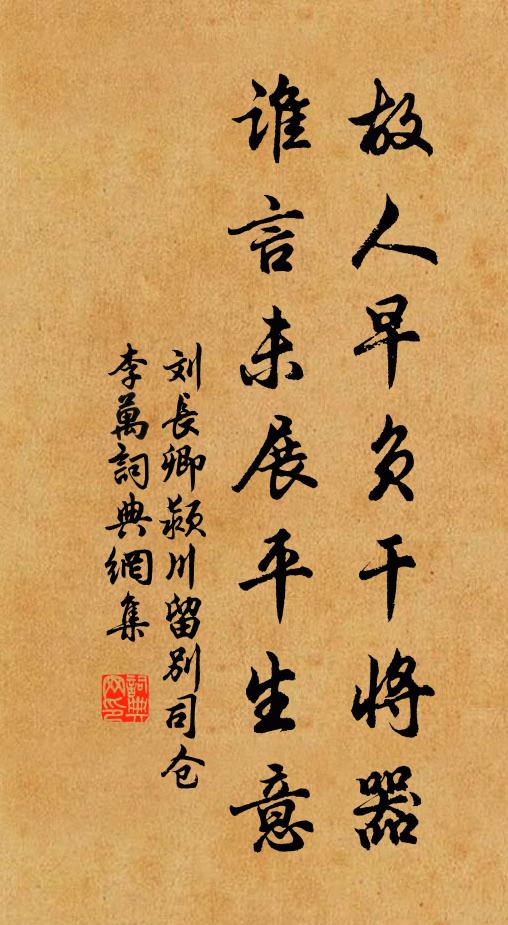 故人早负干将器
谁言未展平生意
刘長卿颍川留别司仓
李萬詞典網集
詞典網印